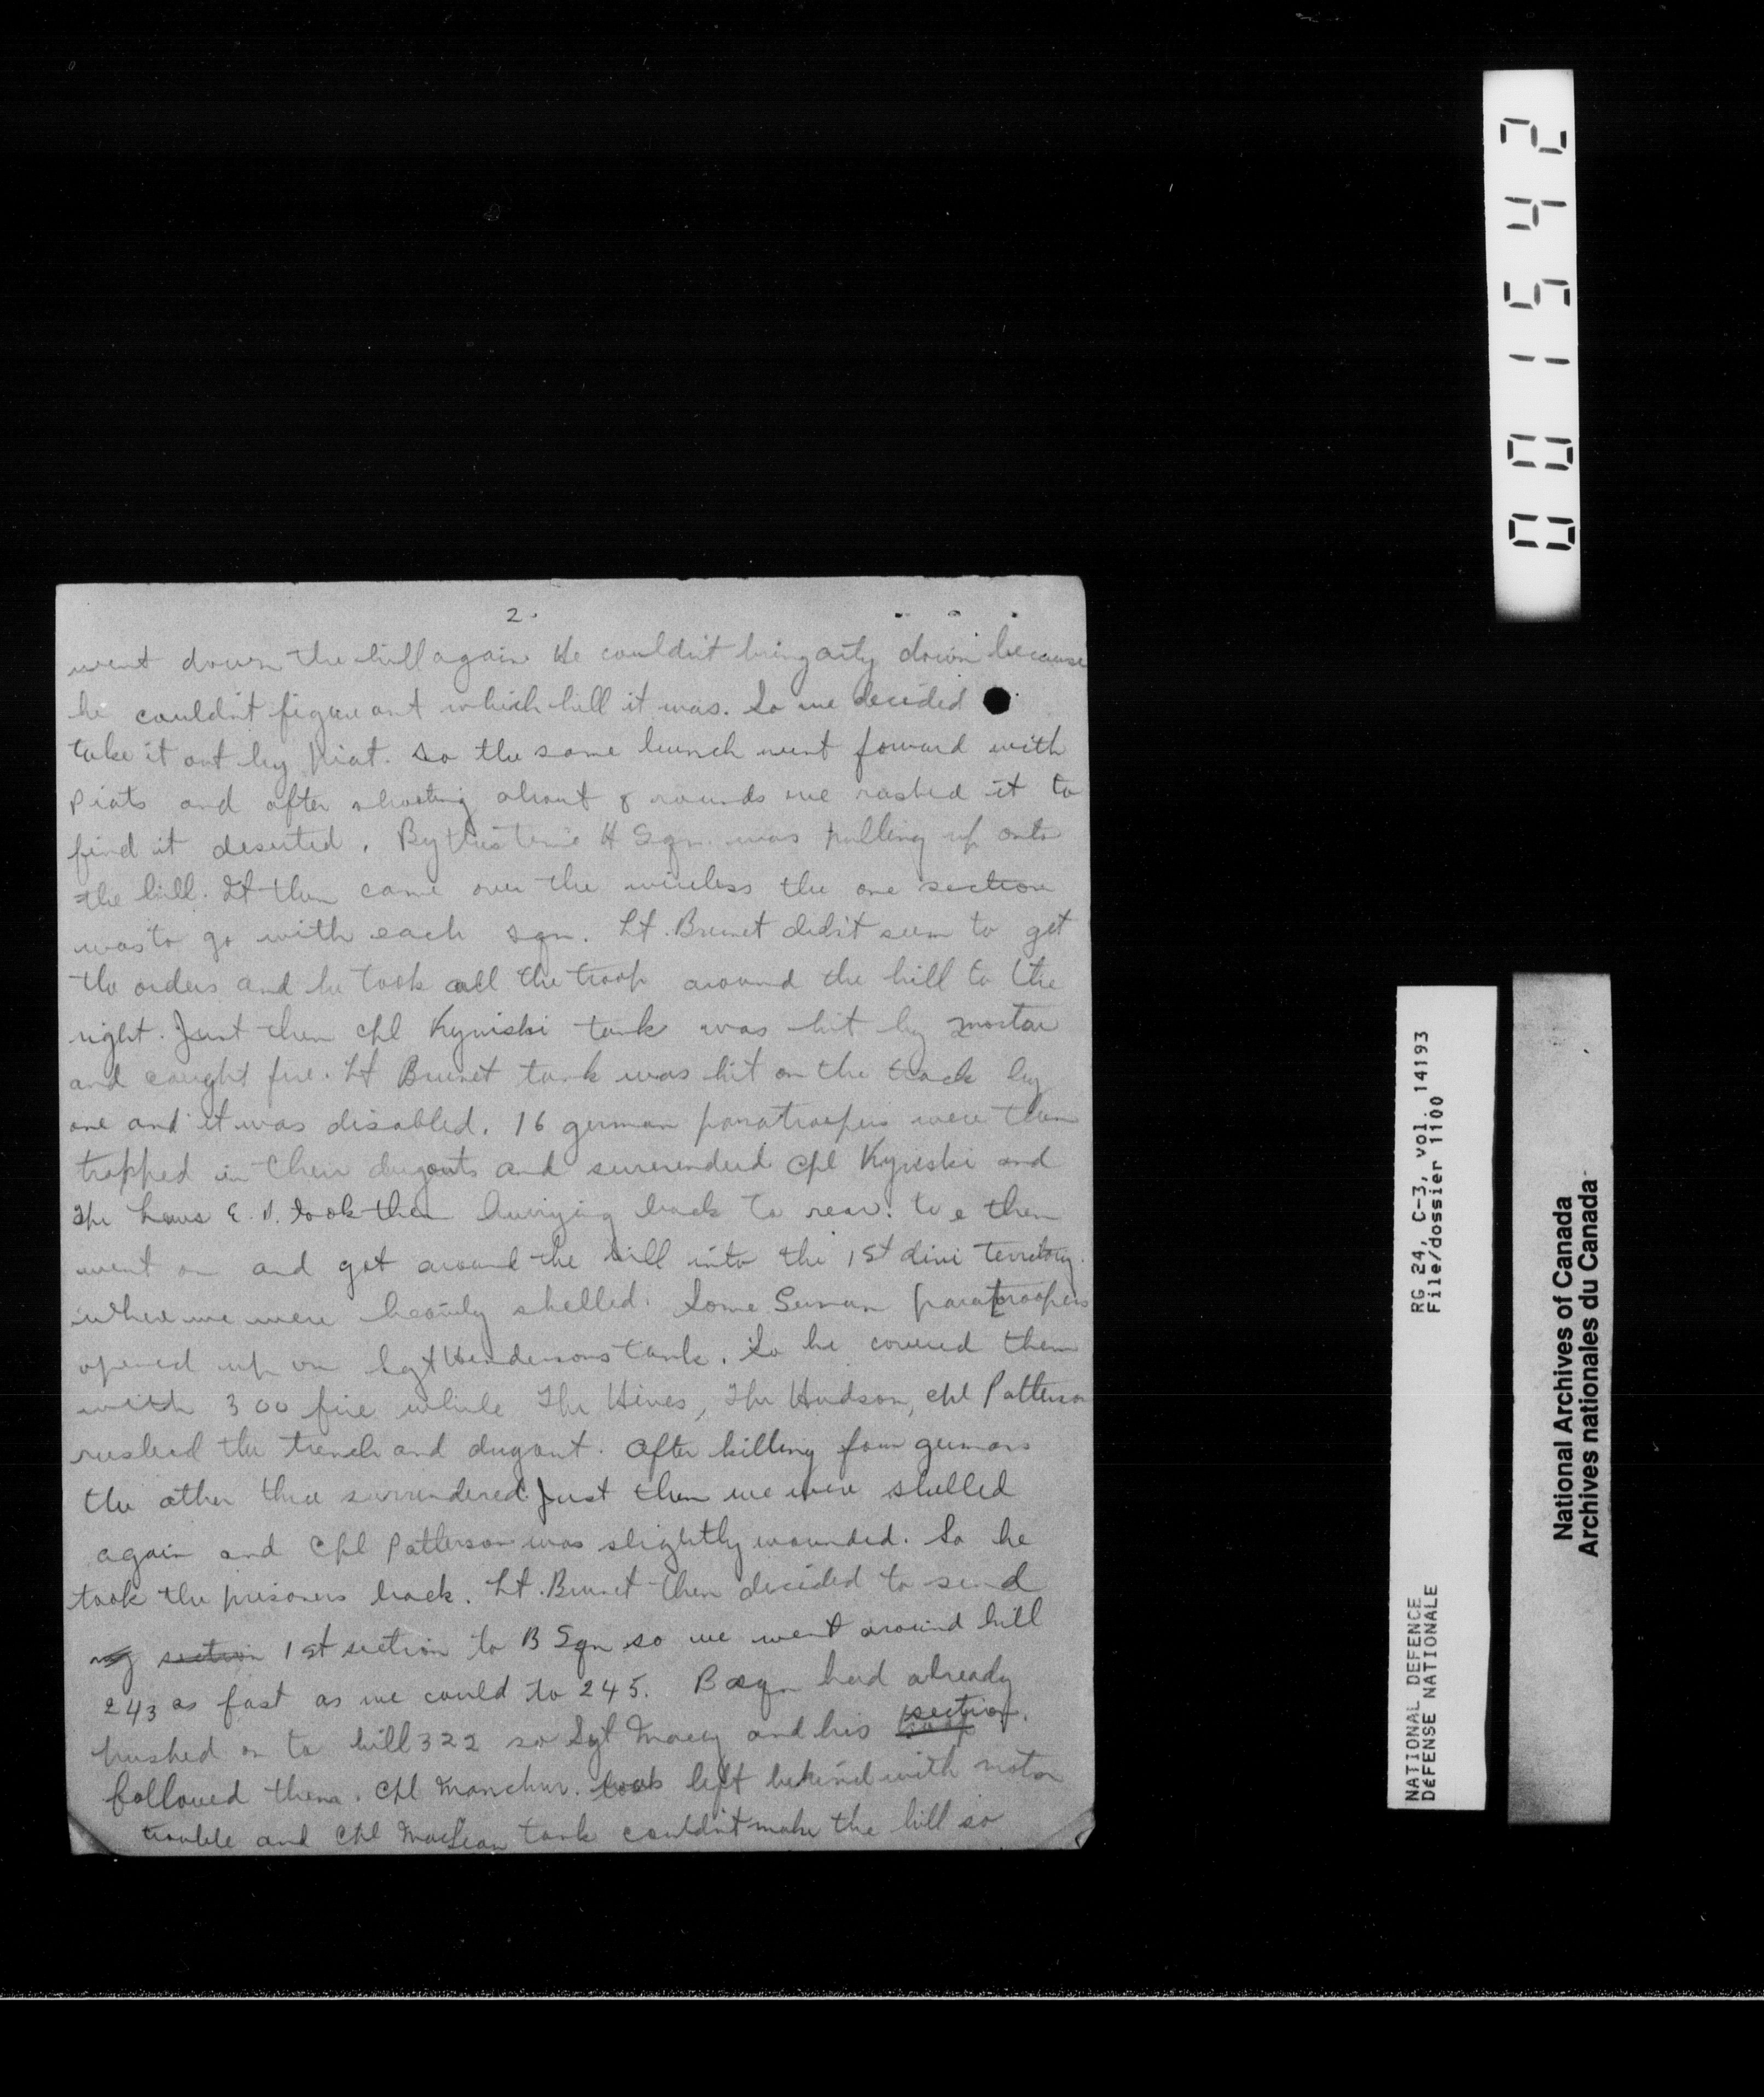 2.
went down the hill again He couldn't bring arty down because
he couldn't figure out which hill it was. So we decided
take it out by piat. So the same bunch went foward with
piats and after shooting about 8 rounds we rushed it to
find it deserted. By this time H Sqn. was pulling up onto
the hill. It then came over the wireless the one section
was to go with each sqn. Lt. Brunet didn't seem to get
the orders and he took all the troop around the hill to the
right. Just then Cpl tank was hit by mortar
and caught fire. Lt Brunet tank was hit on the track by
one and it was disabled. 16 german paratroopers were then
trapped in their dugouts and surrendered Cpl and
Tpr E. D. took them hurrying back to rear. We then
went on and got around the hill into the 1st divi territory
where we were heavily shelled. Some German paratroopers
opened up on Sgt Hendersons tank. So he covered them
with 300 fire while Tpr Hines, Tpr Hudson, Cpl Patterson
rushed the trench and dugout. After killing four germans
the other three surrendered. Just then we were shelled
again and Cpl Patterson was slightly wounded. So he
took the prisoners back. Lt. Brunet then decided to send
my section 1st section to B Sqn so we went around hill
243 as fast as we could to 245. B sqn had already
pushed on to hill 322 so Sgt Macey and his section.
followed them. Cpl Manchur. was left behind with motor
trouble and Cpl MacLean tank couldn't make the hill so
001542
RG 24, C-3, vol. 14193
File/dossier 1100
NATIONAL DEFENCE
DéFENSE NATIONALE
National Archives of Canada
Archives nationales du Canada